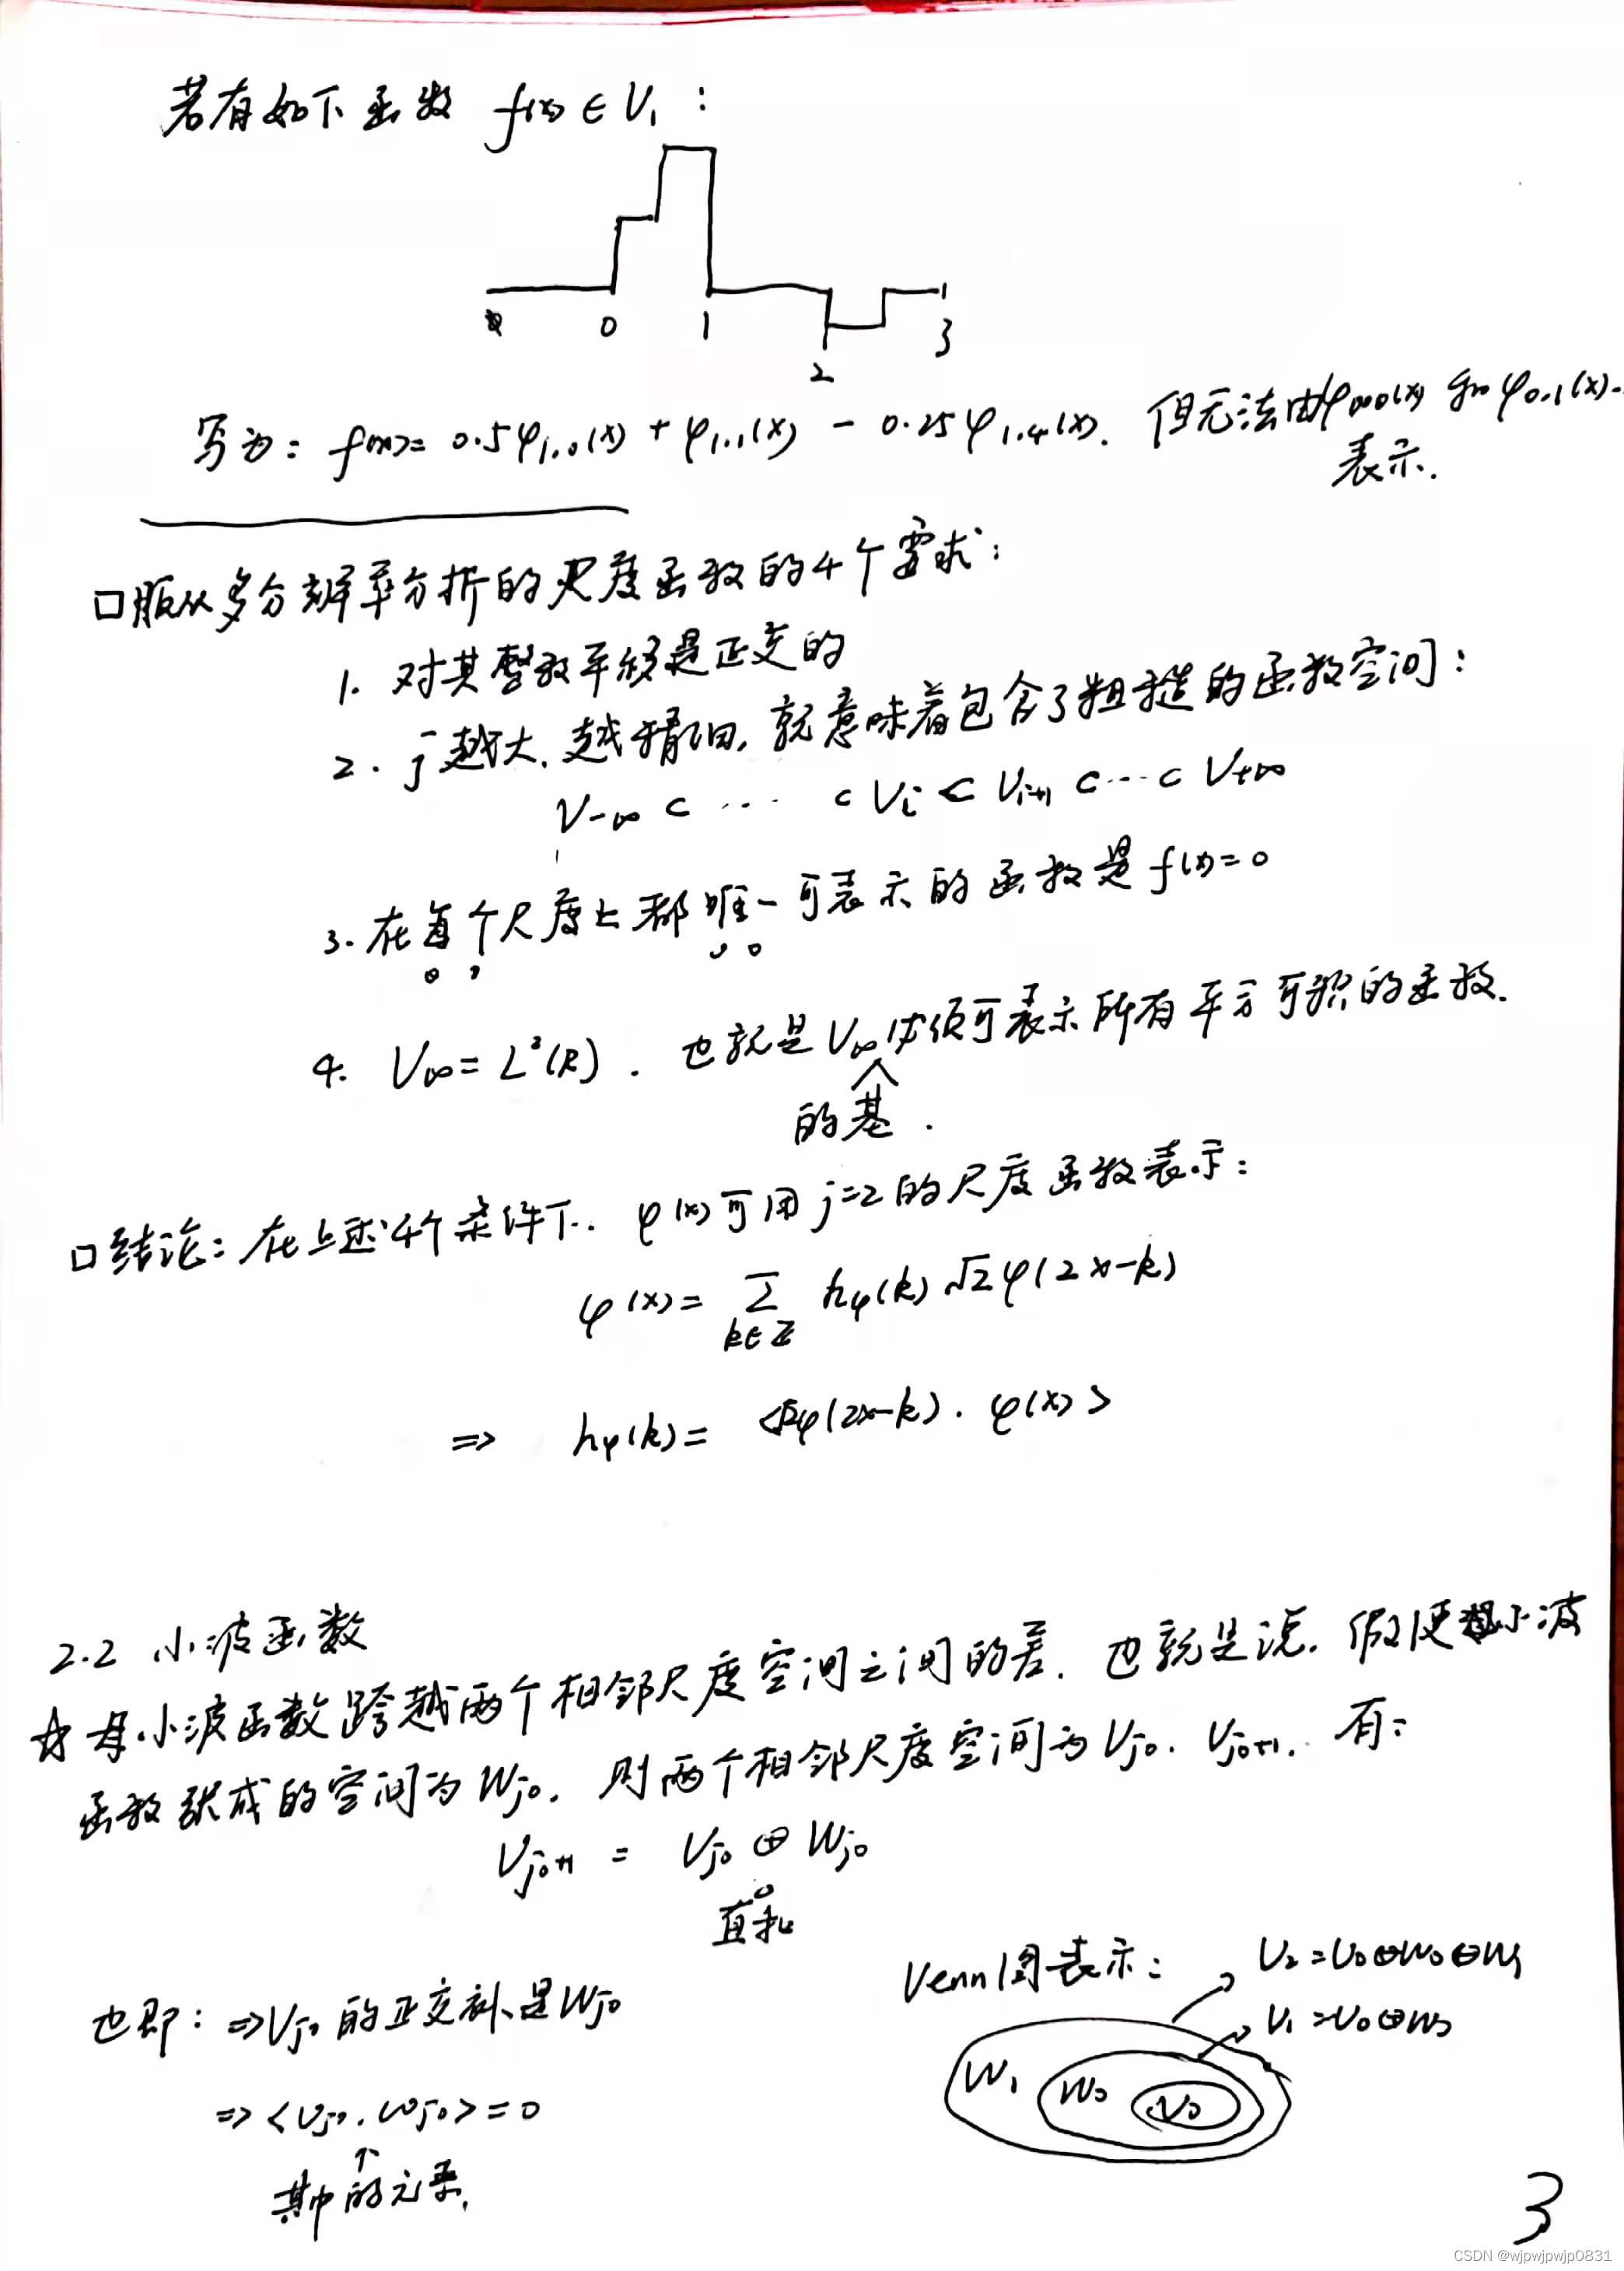 若有如下函数 f(x) ∈ V₁ :
0 1 2 3
写为: f(x) = 0.5φ₁,₀(x) + φ₁,₁(x) - 0.25φ₁,₄(x). 但无法由φ₀,₀(x) 和 φ₀,₁(x)
表示.
口服从多分辨率分析的尺度函数的4个要求:
1. 对其整数平移是正交的
2. j越大, 越精细, 就意味着包含了粗糙的函数空间:
V-∞ ⊂ ... ⊂ Vi ⊂ Vi+1 ⊂ ... ⊂ V+∞
3. 在每个尺度上都唯一可表示的函数是 f(x)=0
4. V∞ = L²(R). 也就是V∞必须可表示所有平方可积的函数.
的基.
口结论: 在上述4个条件下. φ(x)可用j=2的尺度函数表示:
φ(x) = Σ hφ(k) √2 φ(2x-k)
k∈Z
⇒ hφ(k) = <√2φ(2x-k), φ(x)>
2.2 小波函数
☆ 母小波函数跨越两个相邻尺度空间之间的差. 也就是说. 假使小波
函数张成的空间为Wj₀, 则两个相邻尺度空间为Vj₀, Vj₀+1, 有:
Vj₀+1 = Vj₀ ⊕ Wj₀
直和
Venn图表示:
V₂ = V₀⊕W₀⊕W₁
V₁ = V₀⊕W₀
W₁ W₀ V₀
也即: ⇒ Vj₀的正交补是Wj₀
⇒ <Vj₀, Wj₀> = 0
其中的元素.
3
CSDN @wjpwjpwjp0831